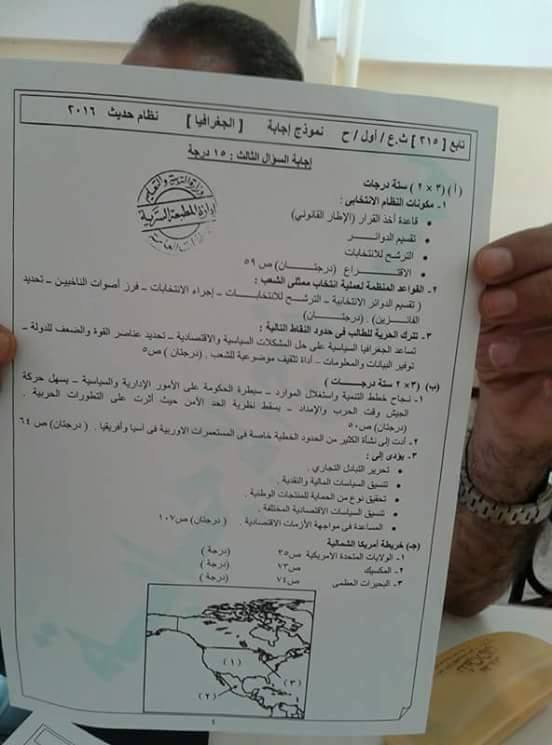 تابع [ ٢١٥ ] ث.ع / أول / ح نموذج إجابة [ الجغرافيا ] نظام حديث ٢٠١٦
إجابة السؤال الثالث : ١٥ درجة
( أ ) ( ٣ × ٢ ) ستة درجات
١- مكونات النظام الانتخابى :
• قاعدة أخذ القرار (الإطار القانوني)
• تقسيم الدوائــــــر
• الترشح للانتخابات
• الاقتـــــراع (درجتــــان) ص ٥٩
٢- القواعد المنظمة لعملية انتخاب ممثلى الشعب :
( تقسيم الدوائر الانتخابية – الترشح للانتخابـــات – إجراء الانتخابات – فرز أصوات الناخبيــن – تحديد
الفائـــزين) . (درجتـــان)
٣- تترك الحرية للطالب فى حدود النقاط التالية :
تساعد الجغرافيا السياسية على حل المشكلات السياسية والاقتصادية – تحديد عناصر القوة والضعف للدولة –
توفير البيانات والمعلومات – أداة تثقيف موضوعية للشعب . (درجتان ) ص٥
(ب) (٣× ٢ ستة درجـــــات )
١- نجاح خطط التنمية واستغلال الموارد – سيطرة الحكومة على الأمور الإدارية والسياسية – يسهل حركة
الجيش وقت الحرب والإمداد – يسقط نظرية الحد الآمن حيث أثرت على التطورات الحربية .
(درجتان) ص٥٠
٢- أدت إلى نشأة الكثير من الحدود الخطية خاصة فى المستعمرات الاوربية فى آسيا وأفريقيا . ( درجتان) ص ٦٤
٣- يؤدى إلى :
• تحرير التبادل التجاري .
• تنسيق السياسات المالية والنقدية .
• تحقيق نوع من الحماية للمنتجات الوطنية .
• تنسيق السياسات الاقتصادية المختلفة .
• المساعدة فى مواجهة الأزمات الاقتصادية . ( درجتان) ص١٠٧
(جـ) خريطة أمريكا الشمالية
١- الولايات المتحدة الامريكية ص٣٥ (درجة )
٢- المكسيك ص٧٣ (درجة )
٣- البحيرات العظمى ص٧٤ (درجة )
(١)
(٣)
(٢)